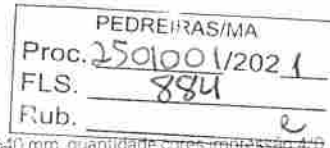 PEDREIRAS/MA
Proc. 2501001/2021
FLS. 884
Rub.
40 mm, quantidade cores impressão 4/0